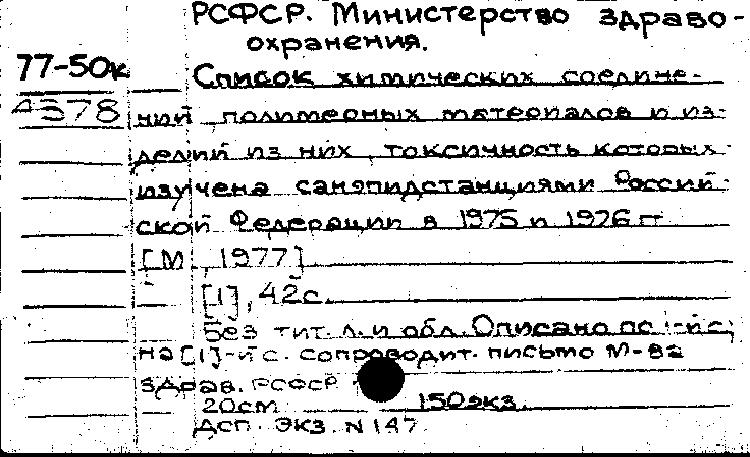 РСФСР. Министерство здраво-
охранения.
77-50к
4378
Список химических соедине-
ний, полимерных материалов и из-
делий из них, токсичность которых
изучена санэпидстанциями Россий-
ской Федерации в 1975 и 1976 гг.
[М., 1977]
[1], 42 с.
Без тит. л. и обл. Описано по 1-й с.
На [1]-й с. сопроводит. письмо М-ва
здрав. РСФСР
20см 150 экз.
Дсп. Экз. N 147